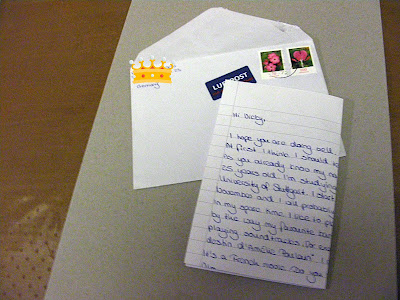 Germany
LUFTPOST
Hi Dicby,
I hope you are doing well
At first I think I should in
As you already know my na
25 years old. I'm studying
University of Stuttgart. I start
November and I will probably
In my spare time I like to p
by the way my favourite ba
playing soundtracks. For exa
destin d'Amélie Poulain". I
It's a French movie. Do you